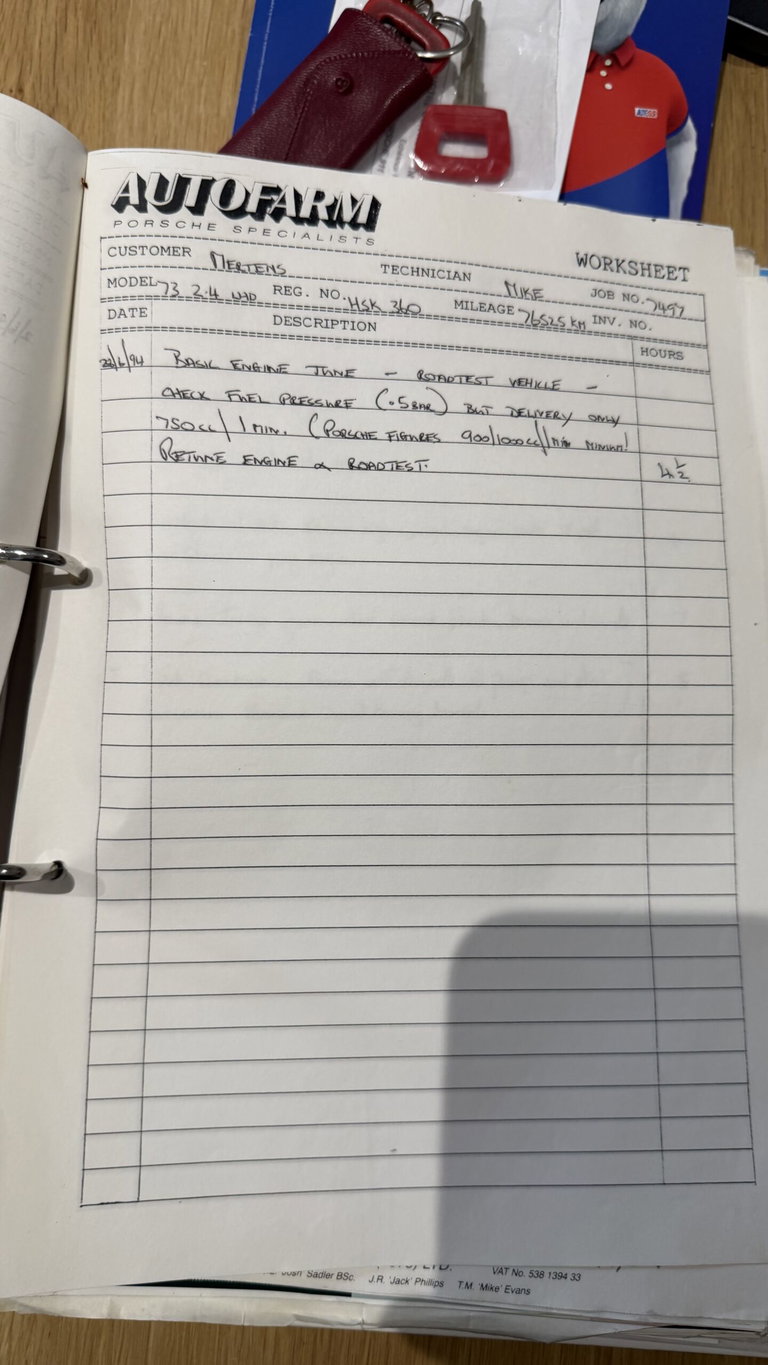 AUTOFARM
PORSCHE SPECIALISTS
WORKSHEET
CUSTOMER MERTENS TECHNICIAN MIKE JOB NO. 7497
MODEL 73 2.4 LHD REG. NO. HSK 360 MILEAGE 76525 KM INV. NO.
DATE DESCRIPTION HOURS
22/6/94 BASIC ENGINE TUNE – ROADTEST VEHICLE –
CHECK FUEL PRESSURE (.5 BAR) BUT DELIVERY ONLY
750cc/1 MIN. (PORSCHE FIGURES 900/1000cc/1 MIN MINIUM!
RETUNE ENGINE & ROADTEST. 4½
LTD. VAT No. 538 1394 33
'Josh' Sadler BSc. J.R. 'Jack' Phillips T.M. 'Mike' Evans